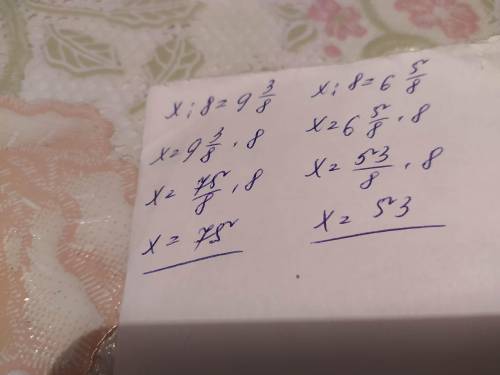 x : 8 = 9 3/8
x = 9 3/8 · 8
x = 75/8 · 8
x = 75
x : 8 = 6 5/8
x = 6 5/8 · 8
x = 53/8 · 8
x = 53